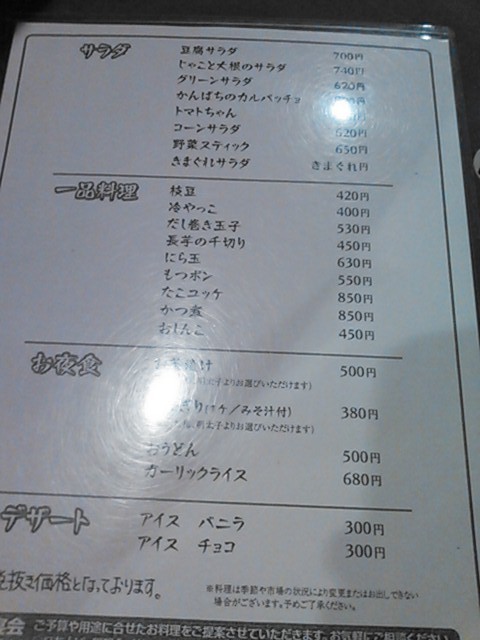 サラダ
豆腐サラダ 700円
じゃこと大根のサラダ 740円
グリーンサラダ 620円
かんぱちのカルパッチョ
トマトちゃん
コーンサラダ 620円
野菜スティック 650円
きまぐれサラダ きまぐれ円
一品料理
枝豆 420円
冷やっこ 400円
だし巻き玉子 530円
長芋の千切り 450円
にら玉 630円
もつポン 550円
たこユッケ 850円
かつ煮 850円
おしんこ 450円
お夜食
お茶漬け 500円
太子よりお選びいただけます)
ぎり(1ケ/みそ汁付) 380円
明太子よりお選びいただけます)
おうどん 500円
ガーリックライス 680円
デザート
アイス バニラ 300円
アイス チョコ 300円
税抜き価格となっております。
※料理は季節や市場の状況により変更またはお出しできない
場合がございます。予めご了承ください。
宴会 ご予算や用途に合せたお料理をご提案させていただきます。お気軽にご相談ください